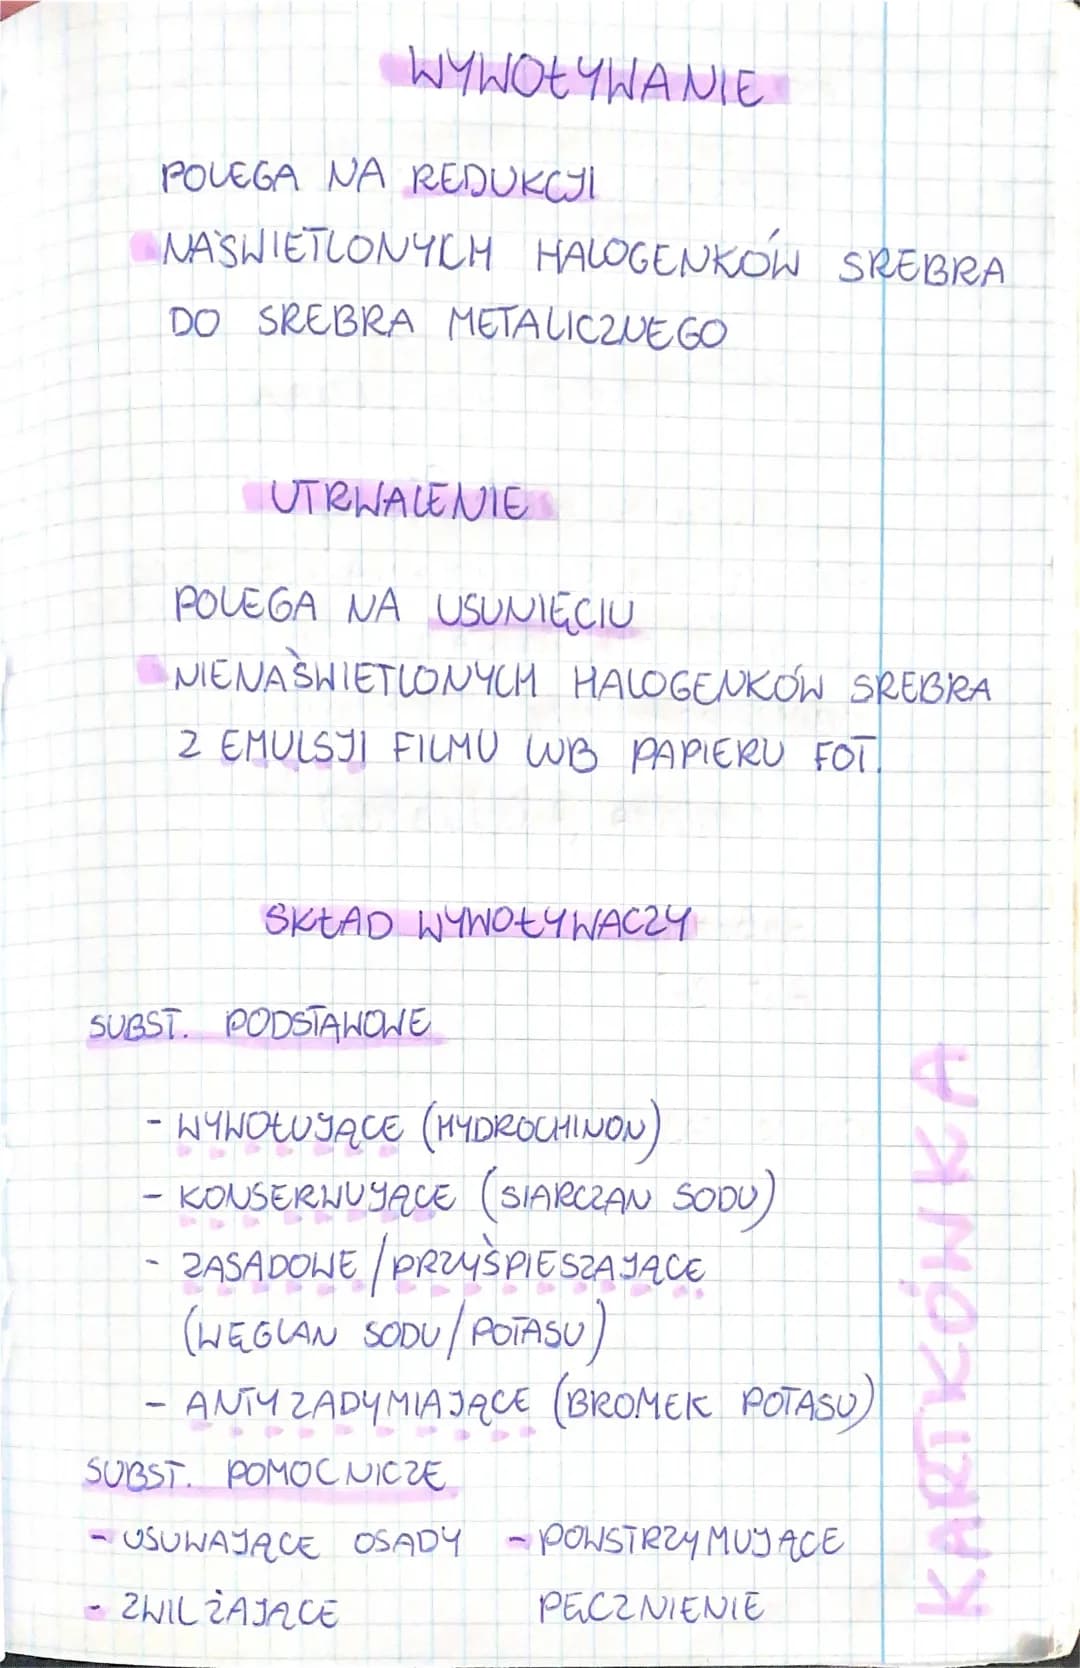 WYWOŁYWANIE
POLEGA NA REDUKCJI
NAŚWIETLONYCH HALOGENKÓW SREBRA
DO SREBRA METALICZNEGO
UTRWALENIE
POLEGA NA USUNIĘCIU
NIENAŚWIETLONYCH HALOGENKÓW SREBRA
Z EMULSJI FILMU LUB PAPIERU FOT.
SKŁAD WYWOŁYWACZY
SUBST. PODSTAWOWE
- WYWOŁUJĄCE (HYDROCHINON)
- KONSERWUJĄCE (SIARCZAN SODU)
- ZASADOWE / PRZYŚPIESZAJĄCE
(WĘGLAN SODU / POTASU)
- ANTYZADYMIAJĄCE (BROMEK POTASU)
SUBST. POMOCNICZE
- USUWAJĄCE OSADY - POWSTRZYMUJĄCE
- ZWILŻAJĄCE PĘCZNIENIE
KARTKÓWKA